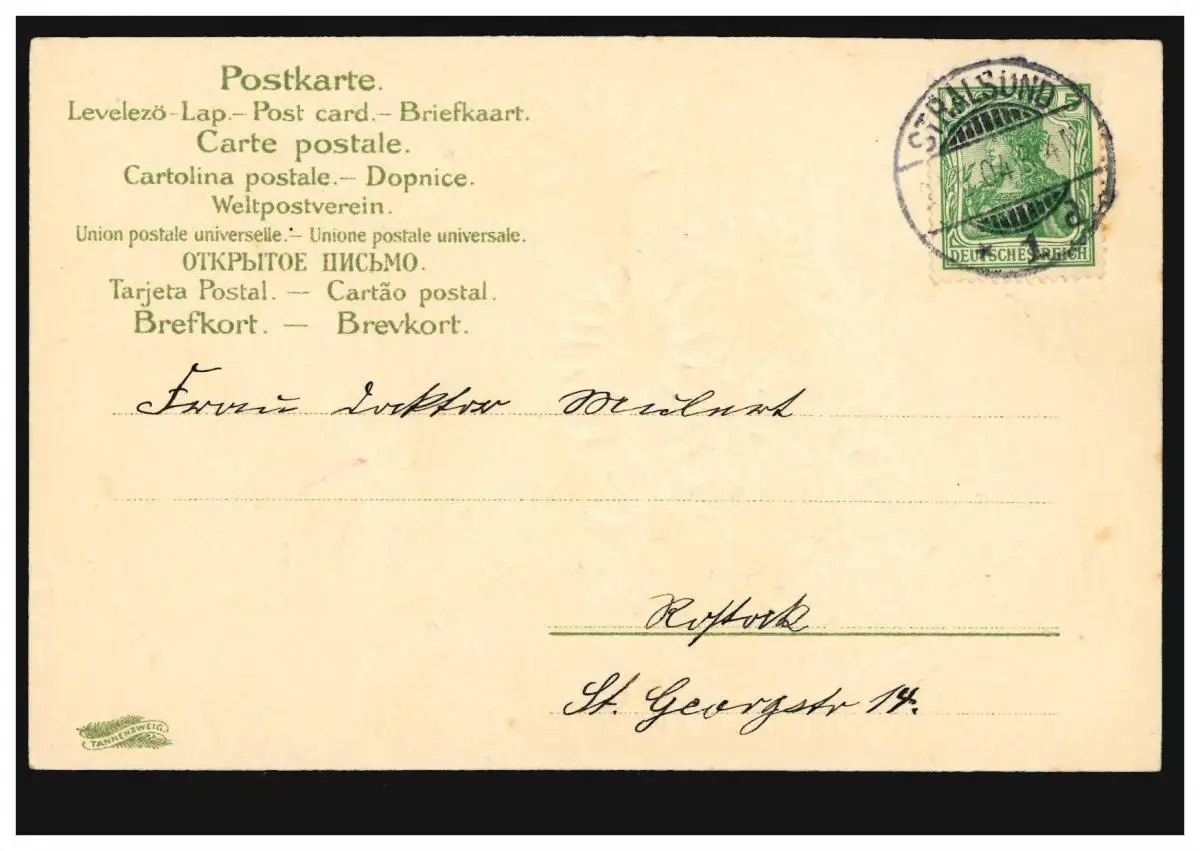 Postkarte.
Levelezö-Lap.- Post card.- Briefkaart.
Carte postale.
Cartolina postale.- Dopnice.
Weltpostverein.
Union postale universelle.- Unione postale universale.
ОТКРЫТОЕ ПИСЬМО.
Tarjeta Postal. — Cartão postal.
Brefkort. — Brevkort.
STRALSUND
04.3-4N
* 1 a
5
DEUTSCHES REICH
Frau Doktor Mulert
Rostock
St. Georgstr 14.
TANNENZWEIG